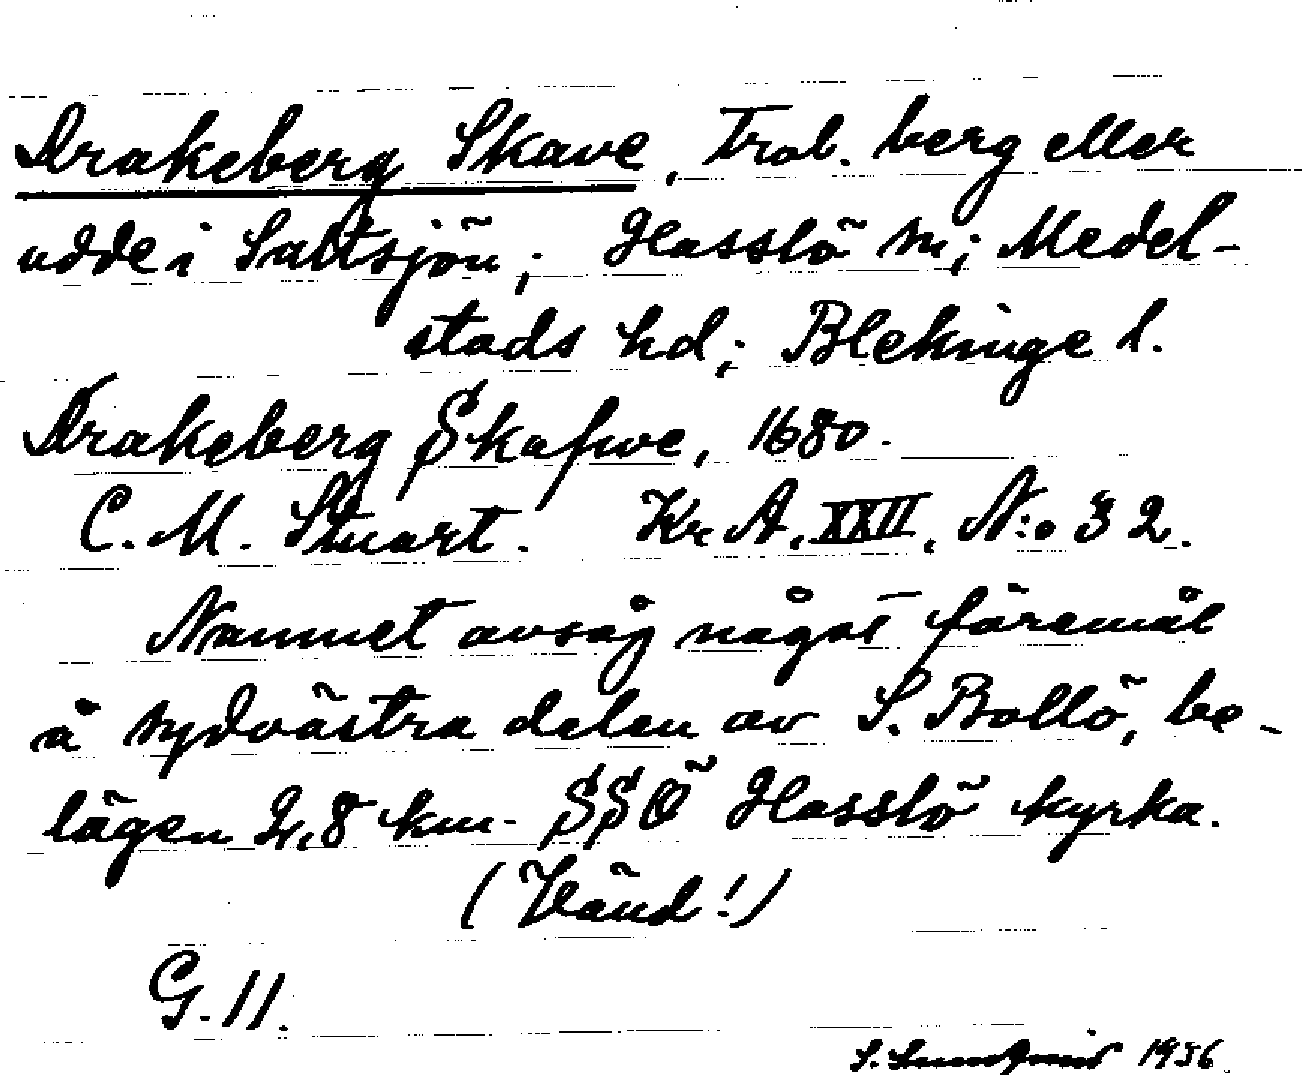 Drakeberg Skave, Trol. berg eller
udde i Saltsjön; Hasslö sn; Medel-
stads hd; Blekinge l.
Drakeberg Skafwe, 1680.
C. M. Stuart. Kr. A. XXII. N:o 32.
Namnet avsåg något föremål
å sydvästra delen av S. Bollö, be-
lägen 4,8 km. SSÖ Hasslö kyrka.
(Vänd!)
G. 11.
S. 1936